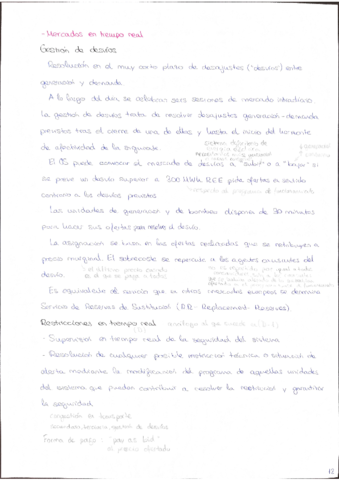 - Mercados en tiempo real
Gestión de desvíos
Resolución en el muy corto plazo de desajustes ("desvíos") entre
generación y demanda.
A lo largo del día se celebran seis sesiones de mercado intradiario.
La gestión de desvíos trata de resolver desajustes generación-demanda
previstos tras el cierre de una de ellas y hasta el inicio del horizonte
de efectividad de la siguiente.
El OS puede convocar el mercado de desvíos a "subir" o a "bajar" si
se prevé un desvío superior a 300 MWh. REE pide ofertas en sentido
contrario a los desvíos previstos.
Las unidades de generación y de bombeo disponen de 30 minutos
para hacer sus ofertas para resolver el desvío.
La asignación se basa en las ofertas realizadas que se retribuyen a
precio marginal. El sobrecoste se repercute a los agentes causantes del
desvío.
Es equivalente al servicio que en otros mercados europeos se denomina
Servicio de Reservas de Sustitución (RR- Replacement Reserves)
Restricciones en tiempo real
- Supervisión en tiempo real de la seguridad del sistema
- Resolución de cualquier posible restricción técnica o situación de
alerta mediante la modificación del programa de aquellas unidades
del sistema que puedan contribuir a resolver la restricción y garantizar
la seguridad.
congestión en transporte
forma de pago: "pay as bid"
al precio ofertado
12